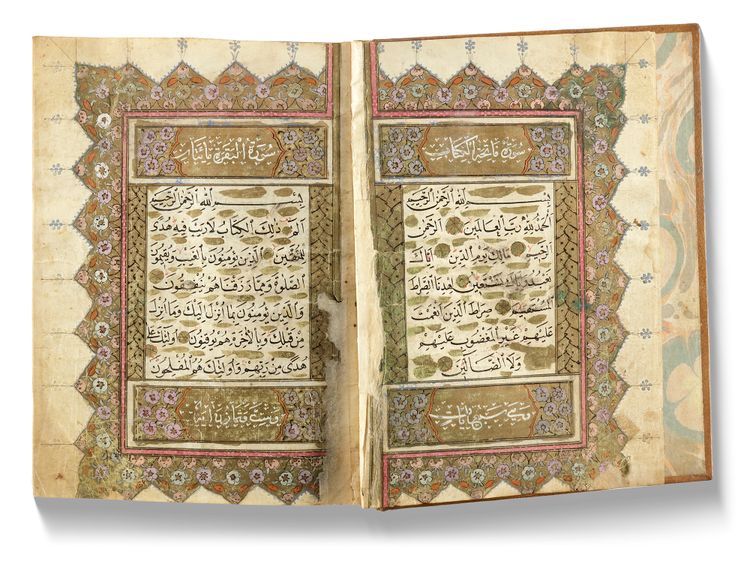 سورة فاتحة الكتاب
بسم الله الرحمن الرحيم
الحمد لله رب العالمين الرحمن
الرحيم مالك يوم الدين اياك
نعبد واياك نستعين اهدنا الصراط
المستقيم صراط الذين انعمت
عليهم غير المغضوب عليهم
ولا الضالين
سورة البقرة مايتان
بسم الله الرحمن الرحيم
الم ذلك الكتاب لا ريب فيه هدى
للمتقين الذين يؤمنون بالغيب ويقيمون
الصلوة ومما رزقناهم ينفقون
والذين يؤمنون بما انزل اليك وما انزل
من قبلك وبالاخرة هم يوقنون اولئك على
هدى من ربهم واولئك هم المفلحون